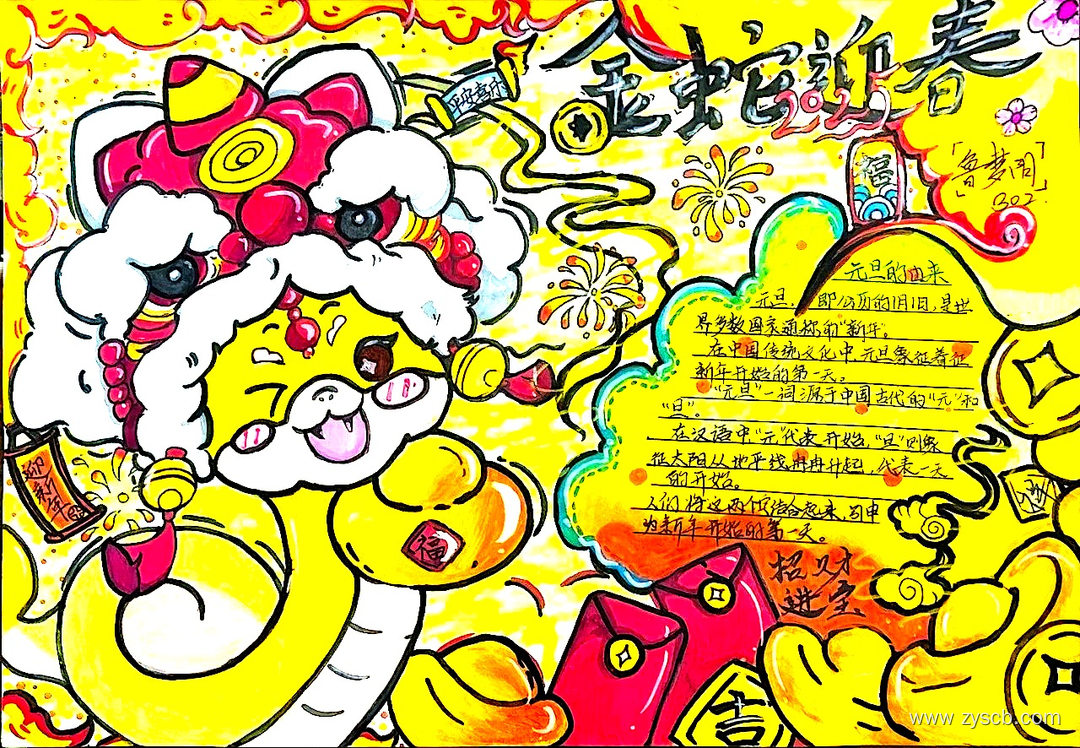 金蛇迎春
2025
平安喜乐
福
302
元旦的由来
元旦,即公历的1月1日,是世
界多数国家通称的“新年”。
在中国传统文化中元旦象征着征
新年开始的第一天。
“元旦”一词源于中国古代的“元”和
“旦”。
在汉语中“元”代表开始,“旦”则象
征太阳从地平线冉冉升起,代表一天
的开始。
人们将这两个
为新年开始的第一天。
迎新年
福
招财
进宝
吉
www.zyscb.com